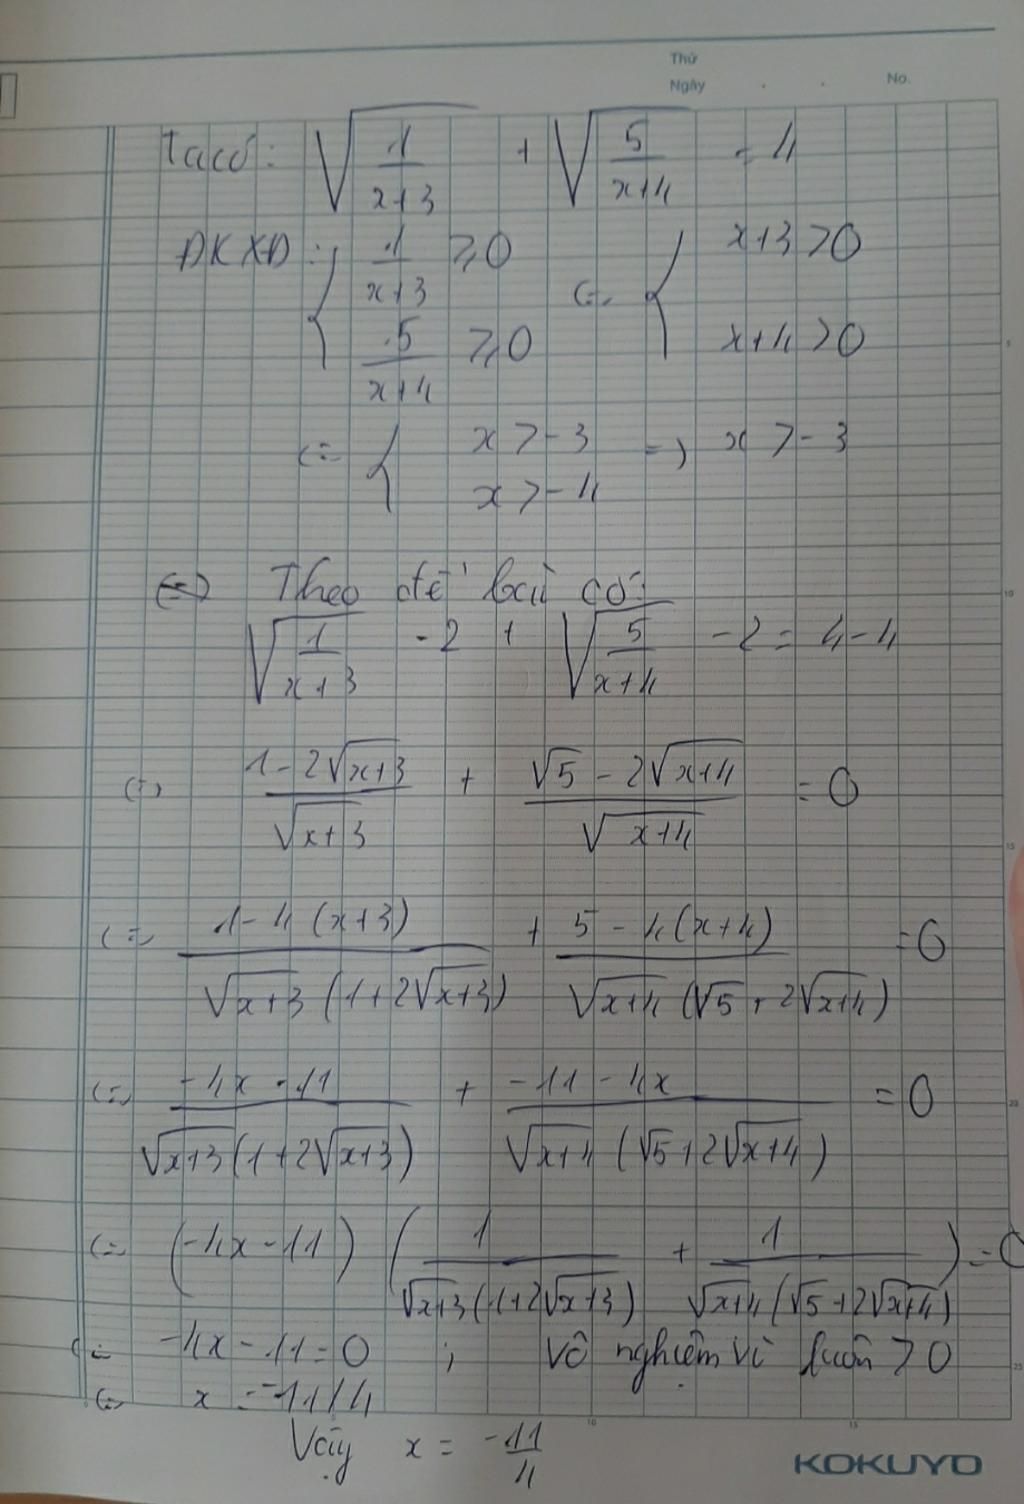 Thứ
Ngày . . No.
Ta có: √(1/(x+3)) + √(5/(x+4)) = 4
ĐKXĐ: { 1/(x+3) ≥ 0 (=) { x+3 > 0
5/(x+4) ≥ 0 x+4 > 0
(=) { x > -3 => x > -3
x > -4
Theo đề bài có:
√(1/(x+3)) - 2 + √(5/(x+4)) - 2 = 4 - 4
(=) (1 - 2√(x+3))/√(x+3) + (√5 - 2√(x+4))/√(x+4) = 0
(=) (1 - 4(x+3))/(√(x+3) (1 + 2√(x+3))) + (5 - 4(x+4))/(√(x+4) (√5 + 2√(x+4))) = 0
(=) (-4x - 11)/(√(x+3) (1 + 2√(x+3))) + (-11 - 4x)/(√(x+4) (√5 + 2√(x+4))) = 0
(=) (-4x - 11) (1/(√(x+3) (1 + 2√(x+3))) + 1/(√(x+4) (√5 + 2√(x+4)))) = 0
(=) -4x - 11 = 0 ; Vô nghiệm vì luôn > 0
(=) x = -11/4
Vậy x = -11/4
KOKUYO